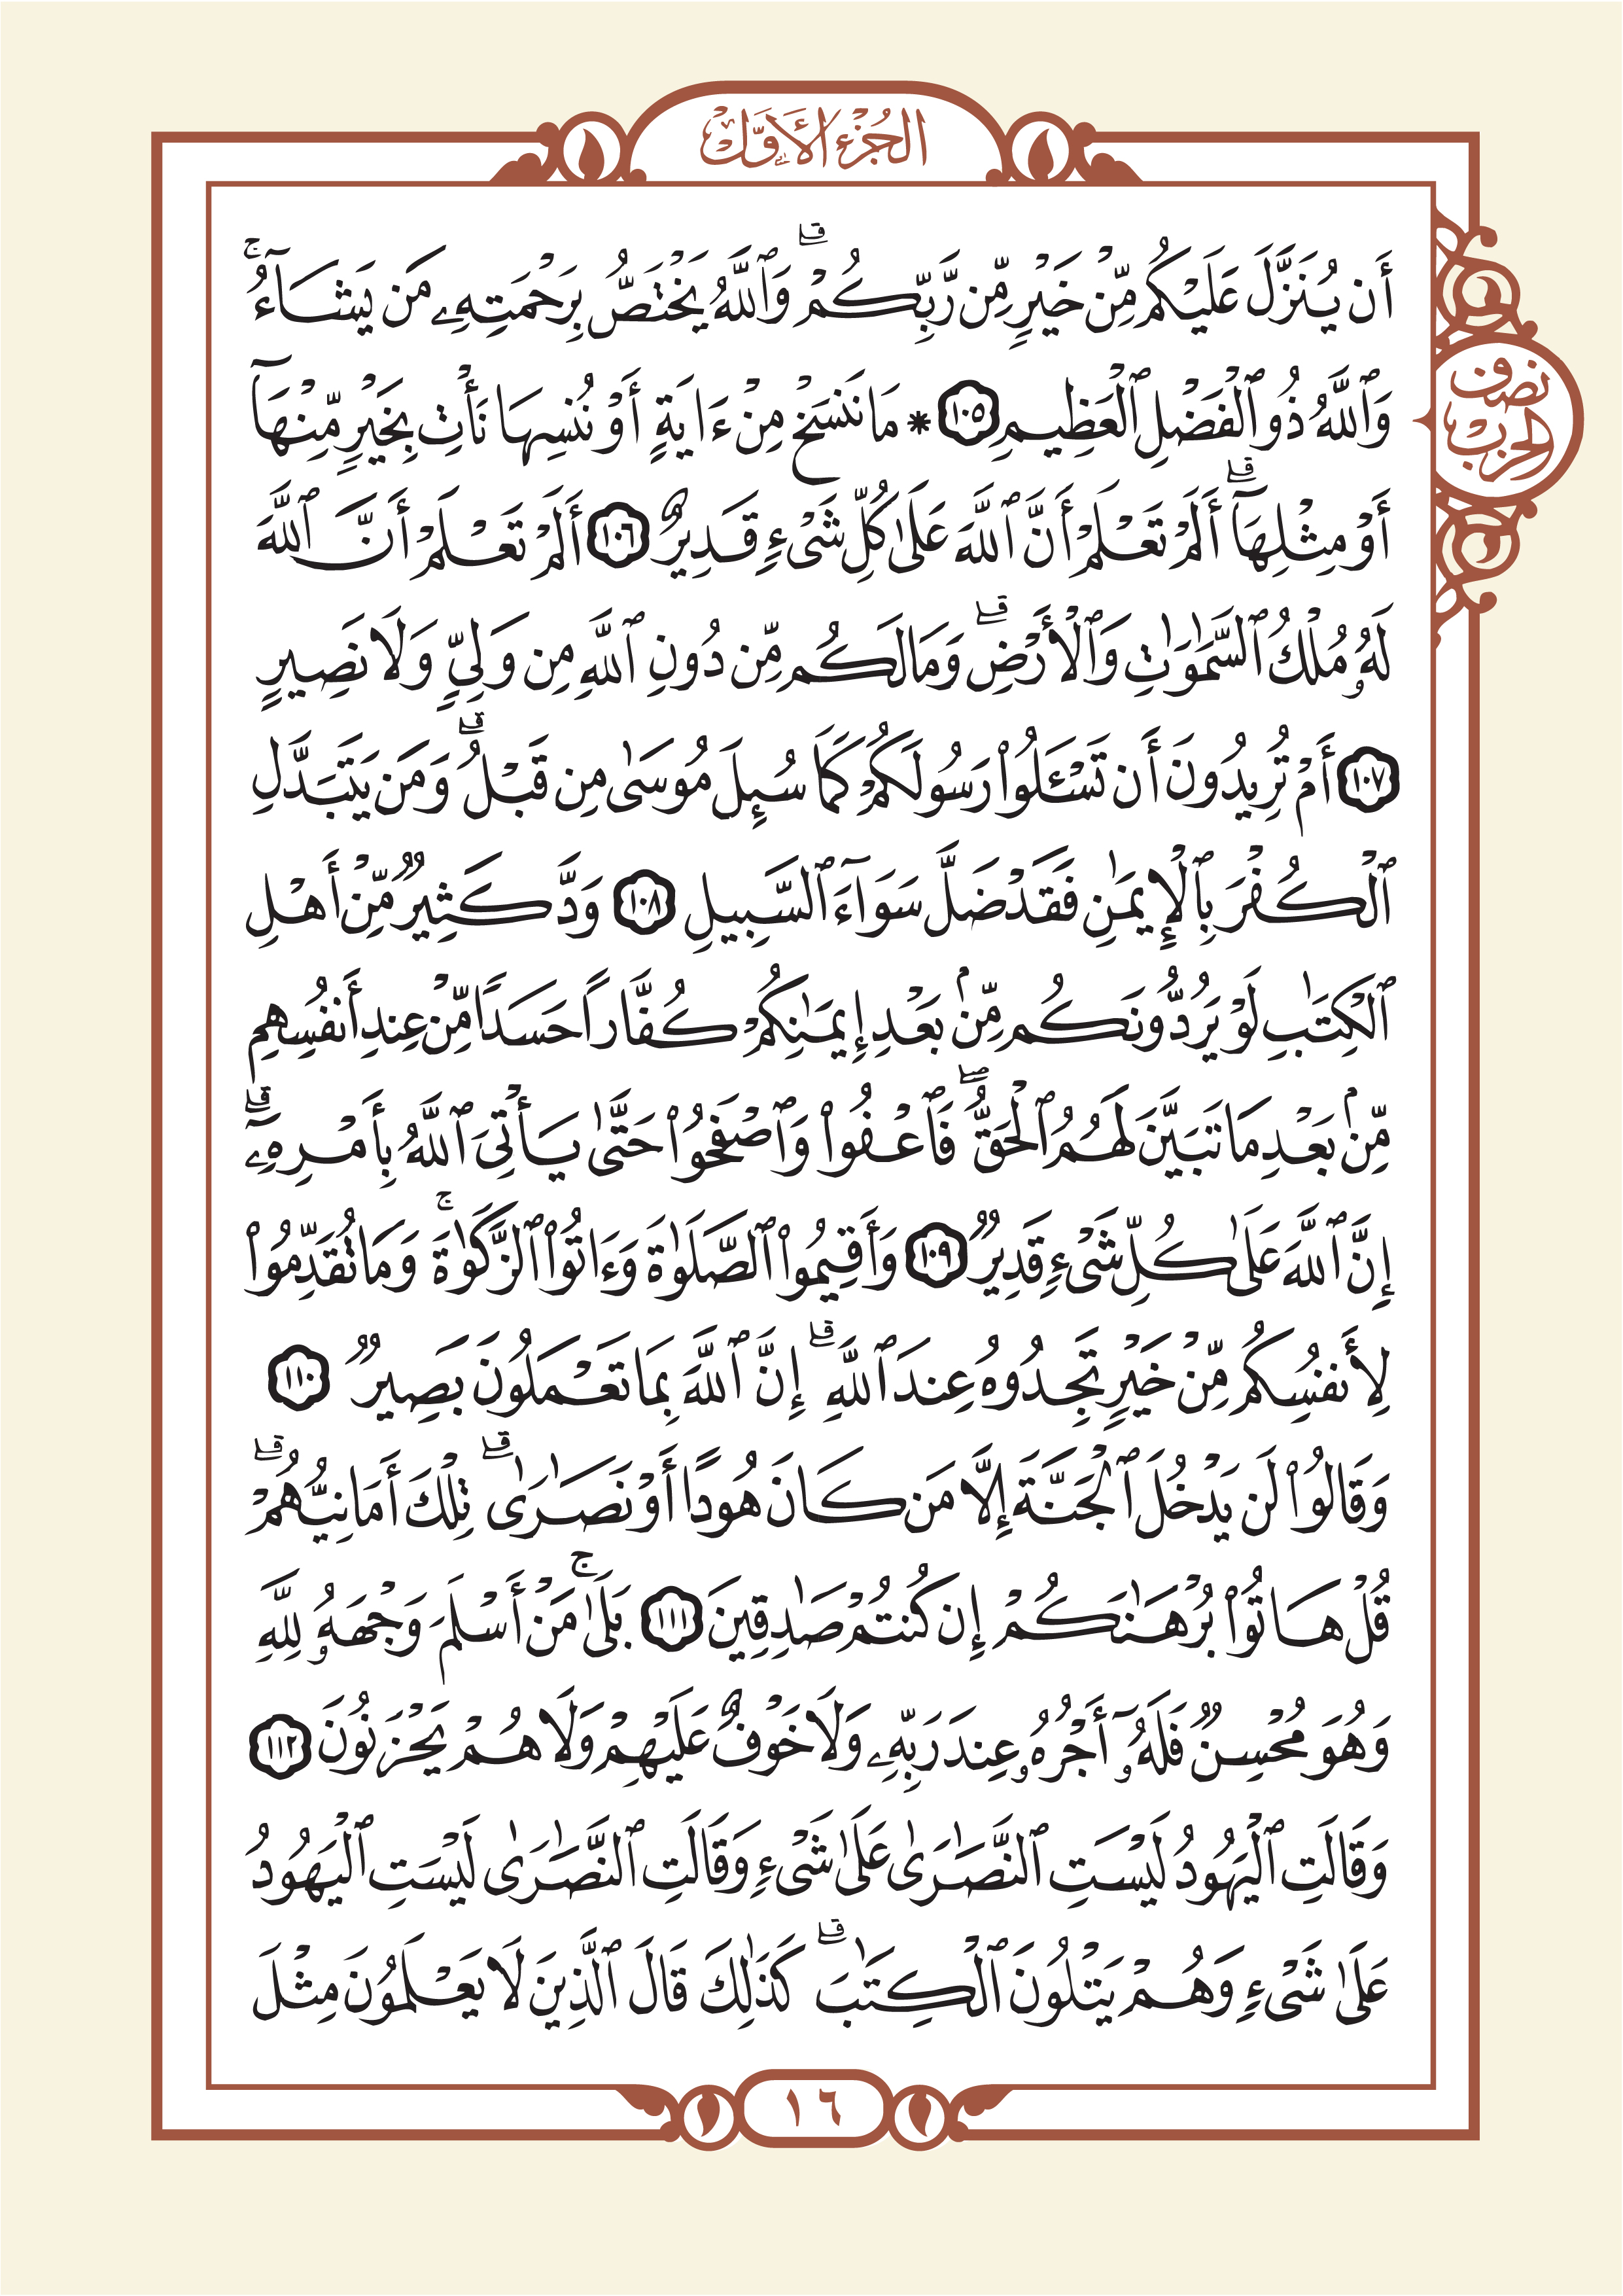 الجُزْءُ الأَوَّلُ
أَن يُنَزَّلَ عَلَيْكُم مِّنْ خَيْرٍ مِّن رَّبِّكُمْ ۗ وَٱللَّهُ يَخْتَصُّ بِرَحْمَتِهِۦ مَن يَشَآءُ ۚ
وَٱللَّهُ ذُو ٱلْفَضْلِ ٱلْعَظِيمِ ١٠٥ * مَا نَنسَخْ مِنْ ءَايَةٍ أَوْ نُنسِهَا نَأْتِ بِخَيْرٍ مِّنْهَآ
أَوْ مِثْلِهَآ ۗ أَلَمْ تَعْلَمْ أَنَّ ٱللَّهَ عَلَىٰ كُلِّ شَىْءٍ قَدِيرٌ ١٠٦ أَلَمْ تَعْلَمْ أَنَّ ٱللَّهَ
لَهُۥ مُلْكُ ٱلسَّمَـٰوَٰتِ وَٱلْأَرْضِ ۗ وَمَا لَكُم مِّن دُونِ ٱللَّهِ مِن وَلِىٍّ وَلَا نَصِيرٍ
١٠٧ أَمْ تُرِيدُونَ أَن تَسْـَٔلُوا۟ رَسُولَكُمْ كَمَا سُئِلَ مُوسَىٰ مِن قَبْلُ ۗ وَمَن يَتَبَدَّلِ
ٱلْكُفْرَ بِٱلْإِيمَـٰنِ فَقَدْ ضَلَّ سَوَآءَ ٱلسَّبِيلِ ١٠٨ وَدَّ كَثِيرٌ مِّنْ أَهْلِ
ٱلْكِتَـٰبِ لَوْ يَرُدُّونَكُم مِّنۢ بَعْدِ إِيمَـٰنِكُمْ كُفَّارًا حَسَدًا مِّنْ عِندِ أَنفُسِهِم
مِّنۢ بَعْدِ مَا تَبَيَّنَ لَهُمُ ٱلْحَقُّ ۖ فَٱعْفُوا۟ وَٱصْفَحُوا۟ حَتَّىٰ يَأْتِىَ ٱللَّهُ بِأَمْرِهِۦٓ ۗ
إِنَّ ٱللَّهَ عَلَىٰ كُلِّ شَىْءٍ قَدِيرٌ ١٠٩ وَأَقِيمُوا۟ ٱلصَّلَوٰةَ وَءَاتُوا۟ ٱلزَّكَوٰةَ ۚ وَمَا تُقَدِّمُوا۟
لِأَنفُسِكُم مِّنْ خَيْرٍ تَجِدُوهُ عِندَ ٱللَّهِ ۗ إِنَّ ٱللَّهَ بِمَا تَعْمَلُونَ بَصِيرٌ ١١٠
وَقَالُوا۟ لَن يَدْخُلَ ٱلْجَنَّةَ إِلَّا مَن كَانَ هُودًا أَوْ نَصَـٰرَىٰ ۗ تِلْكَ أَمَانِيُّهُمْ ۗ
قُلْ هَاتُوا۟ بُرْهَـٰنَكُمْ إِن كُنتُمْ صَـٰدِقِينَ ١١١ بَلَىٰ ۚ مَنْ أَسْلَمَ وَجْهَهُۥ لِلَّهِ
وَهُوَ مُحْسِنٌ فَلَهُۥٓ أَجْرُهُۥ عِندَ رَبِّهِۦ وَلَا خَوْفٌ عَلَيْهِمْ وَلَا هُمْ يَحْزَنُونَ ١١٢
وَقَالَتِ ٱلْيَهُودُ لَيْسَتِ ٱلنَّصَـٰرَىٰ عَلَىٰ شَىْءٍ وَقَالَتِ ٱلنَّصَـٰرَىٰ لَيْسَتِ ٱلْيَهُودُ
عَلَىٰ شَىْءٍ وَهُمْ يَتْلُونَ ٱلْكِتَـٰبَ ۗ كَذَٰلِكَ قَالَ ٱلَّذِينَ لَا يَعْلَمُونَ مِثْلَ
نصف
الحزب
١٦